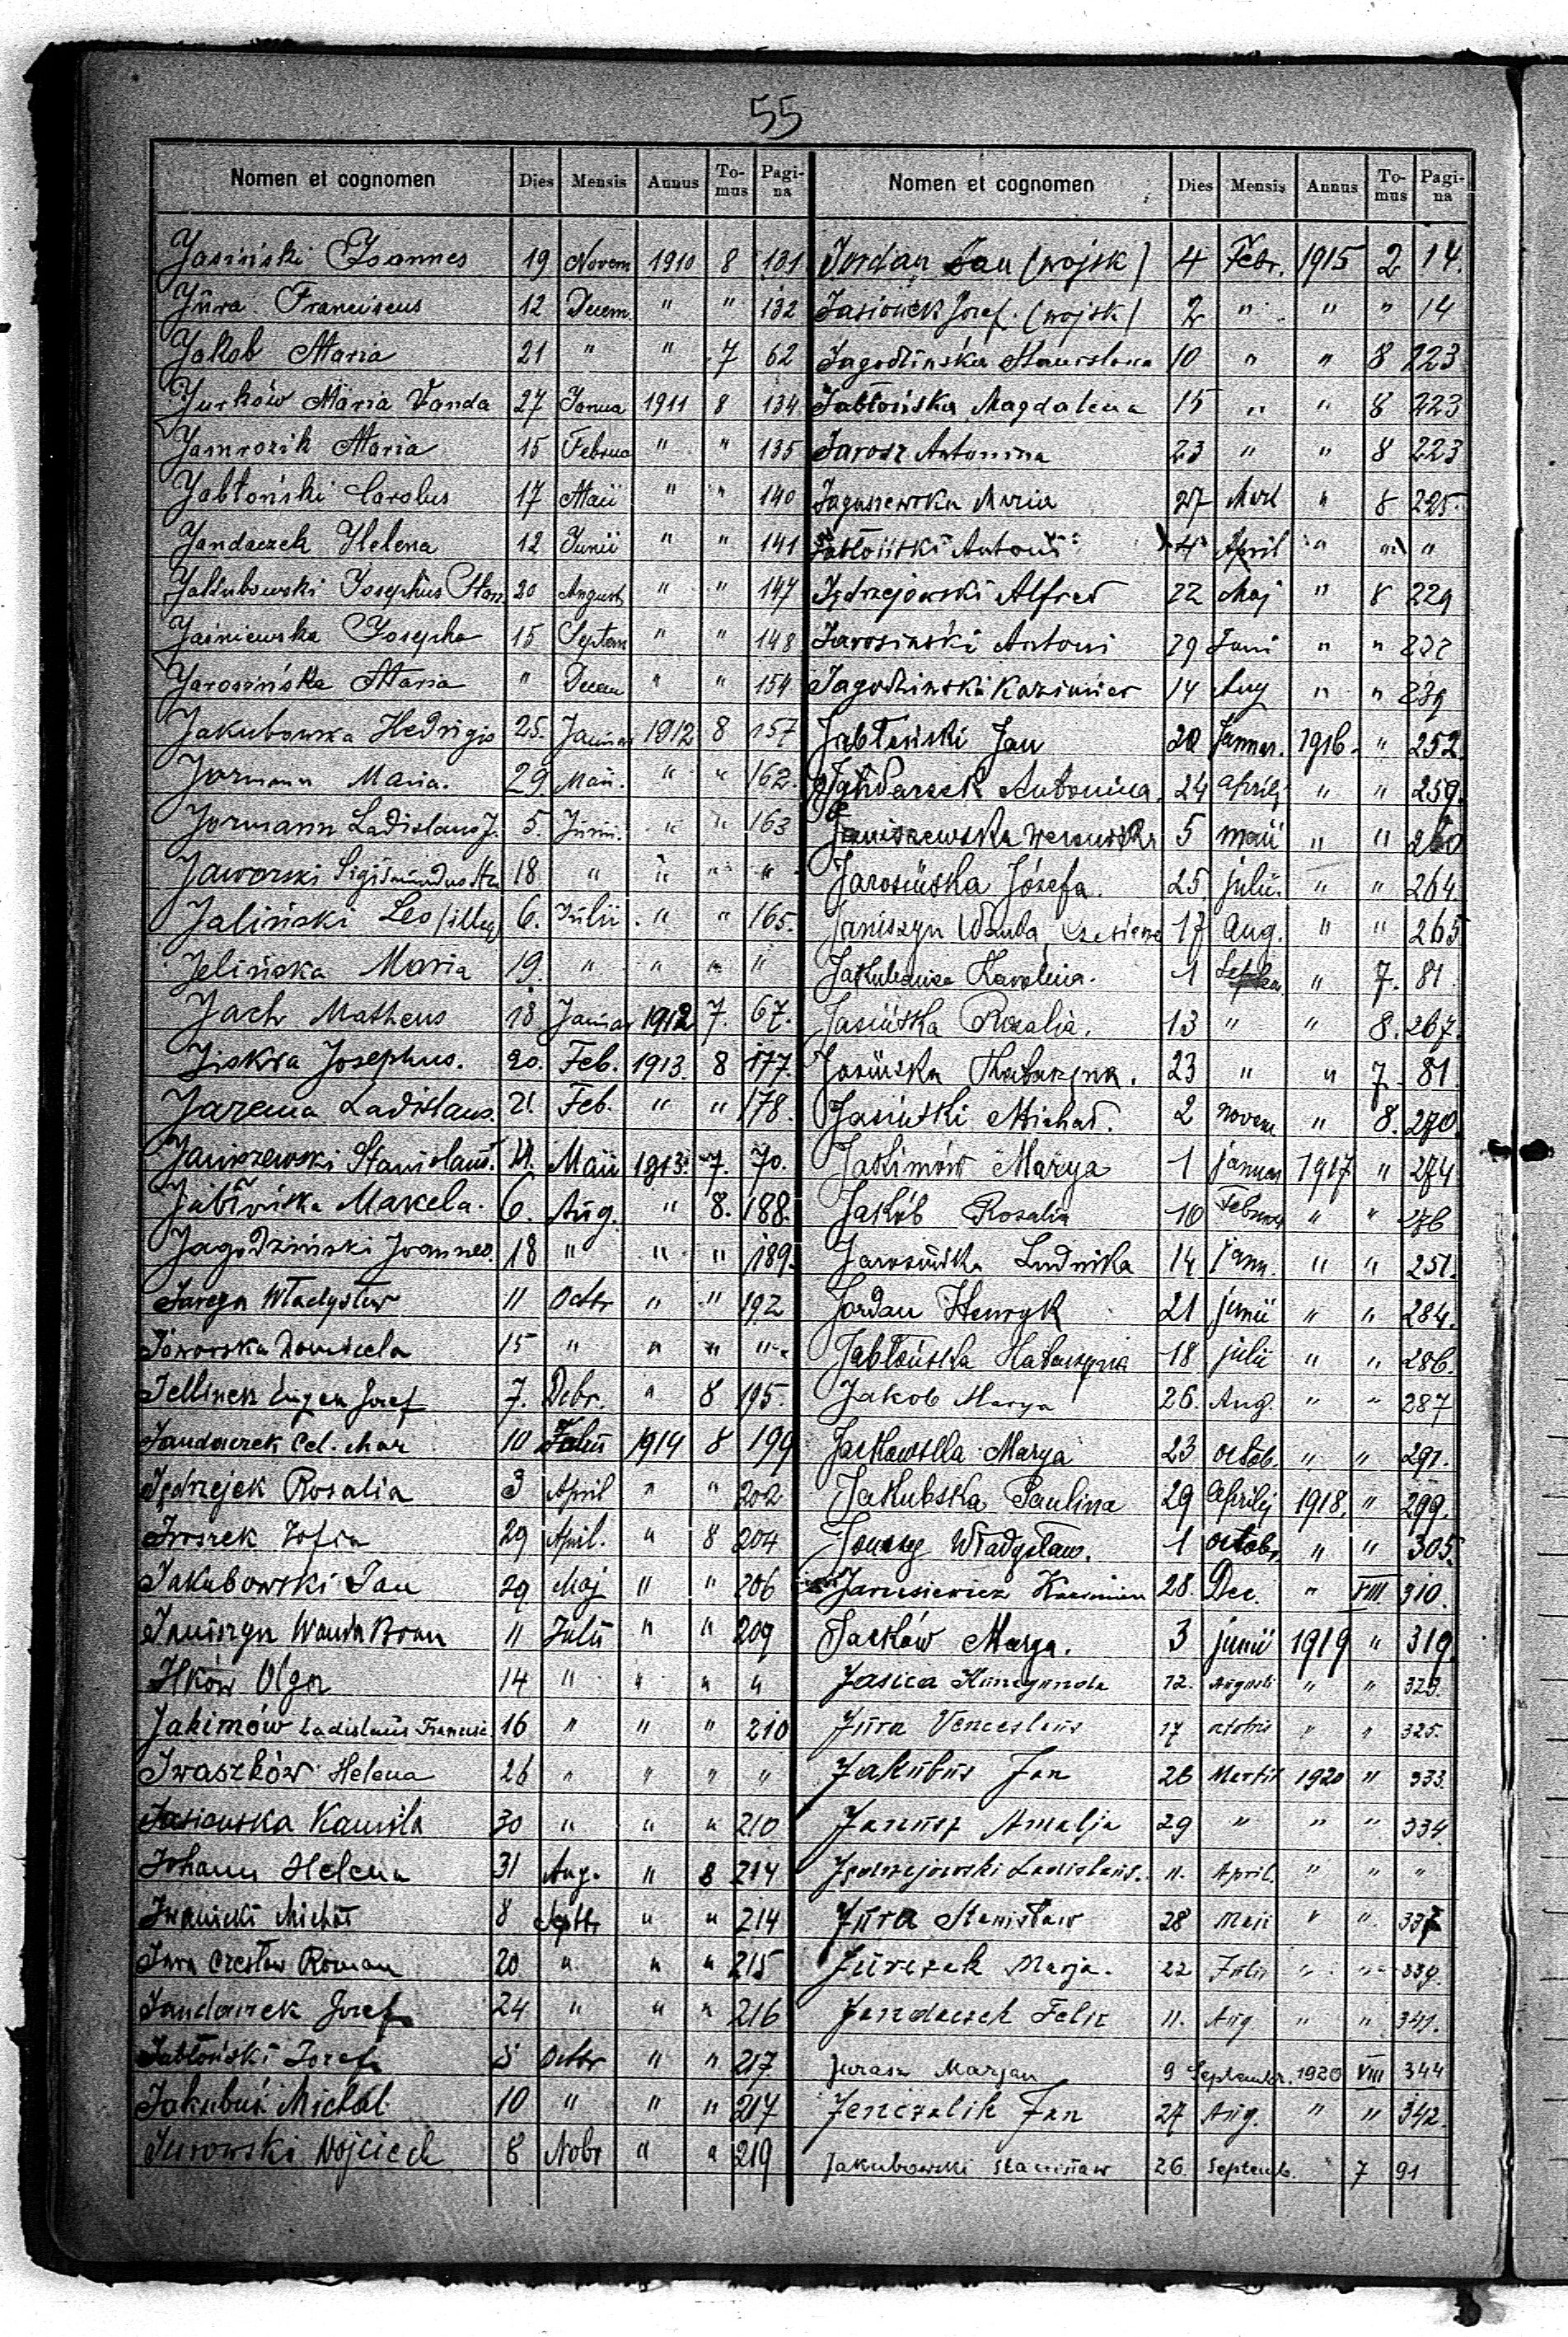 55
Nomen et cognomen Dies Mensis Annus To-mus Pagi-na
Jasiński Joannes 19 Novem 1910 8 131
Jura Franciscus 12 Decem. " " 132
Jakob Maria 21 " " 7 62
Jurków Maria Vanda 27 Janua 1911 8 134
Jamrozik Maria 15 Februa " " 135
Jabłoński Carolus 17 Maii " " 140
Jandaczek Helena 12 Junii " " 141
Jakubowski Josephus Stan. 20 August " " 147
Jaśniewska Josepha 15 Septem " " 148
Jarosińska Maria " Decem " " 154
Jakubowska Hedvigis 25. Januar 1912 8 157
Jormann Maria. 29 Maii. " " 162.
Jormann Ladislaus J. 5. Junii. " " 163
Jaworski Sigismundus 18 " " " "
Jaliński Leo /illeg 6. Julii " " 165.
Jelińska Maria 19. " " " "
Jach Matheus 18 Januar 1912 7. 67.
Jiskra Josephus. 20. Feb. 1913. 8 177.
Jarema Ladislaus. 21. Feb. " " 178.
Janiszewski Stanislaus. Maii 1913. 7. 70.
Jabłońska Marcela. 6. Aug. " 8. 188.
Jagodziński Joannes. 18 " " " 189.
Władysław 11 Octbr " " 192
Jaworska 15 " " " "
Jellinek Eugen Josef 7. Dcbr. " 8 195.
Jandaczek Cel. Mar 10 1914 8 199
Jędrzejek Rosalia 3 April " " 202
Zofia 29 April. " 8 204
Jakubowski Jan 29 Maj " " 206
Janiszyn Wanda Bron 11 Julii " " 209
Ilków Olga 14 " " " "
Jakimów Ladislaus Francisc. 16 " " " 210
Iwaszków Helena 26 " " " "
Kamila 30 " " " 210
Johann Helena 31 Aug. " 8 214
Iwanicki Michał 8 Septbr " " 214
Jura Czesław Roman 20 " " " 215
Jandaczek Josef 24 " " " 216
Jabłoński Józef 5 Octbr " " 217
Jakubus Michał 10 " " " 217
Jurowski Wojciech 8 Nobr " " 219
Nomen et cognomen Dies Mensis Annus To-mus Pagi-na
Jordan Jan (wojsk) 4 Febr. 1915 2 14.
Jasionek Józef. (wojsk) 2 " " " 14
Jagodzińska Stanisława 10 " " 8 223
Jabłońska Magdalena 15 " " 8 223
Jarosz Antonina 23 " " 8 223
Jaguszewska Maria 27 Mart " 8 225.
Jabłoński Antoni 4 April " " "
Jędrzejowski Alfred 22 Maj " 8 229
Jarosiński Antoni 29 Juni " "
Jagodziński Kazimier 14 Aug " " 239
Jabłoński Jan 20 Januar. 1916. " 252.
Jandaczek Antonina. 24 Aprilis " " 259.
Janiszewska Weronika 5 maii " " 260
Jarosińska Józefa. 25 julii. " " 264.
Janiszyn Wanda 17 Aug. " " 265
Karolina. 1 " 7. 81.
Jasińska Rozalia. 13 " " 8. 267.
Jasińska Katarzyna. 23 " " 7. 81.
Jasiński Michał. 2 novem " 8. 270.
Jakimów Marya 1 januar 1917 " 274.
Jakób Rozalia 10 Februar " " 276
Jarosińska Ludwika 14 janu. " " 251.
Jordan Henryk 21 junii " " 284.
Jabłońska Katarzyna 18 julii " " 286.
Jakob Marya 26. Aug. " " 287
Jackowska Marya 23 octob. " " 291.
Jakubska Paulina 29 Aprilis 1918. " 299.
Władysław. 1 octobr. " " 305.
Janusiewicz Kazimier 28. Dec. " VIII 310.
Jacków Marya. 3 junii 1919 " 319.
Jasica Kunegunda 12. Augusti " " 323.
Jura Venceslaus 17 octobris " " 325.
Jakubus Jan 26 Martii 1920 " 333.
Janusz Amalja 29 " " " 334.
Jędrzejowski Ladislaus. 11. April. " " "
Jura Stanisław 28 Maii " " 337
Jurczak Marja. 22 Julii " " 339.
Jandaczek Felix 11. Aug " " 341.
Jurasz Marjan 9 Septembr. 1920 VIII 344
Jenczalik Jan 27 Aug. " " 342.
Jakubowski Stanisław 26 Septemb. " 7 91